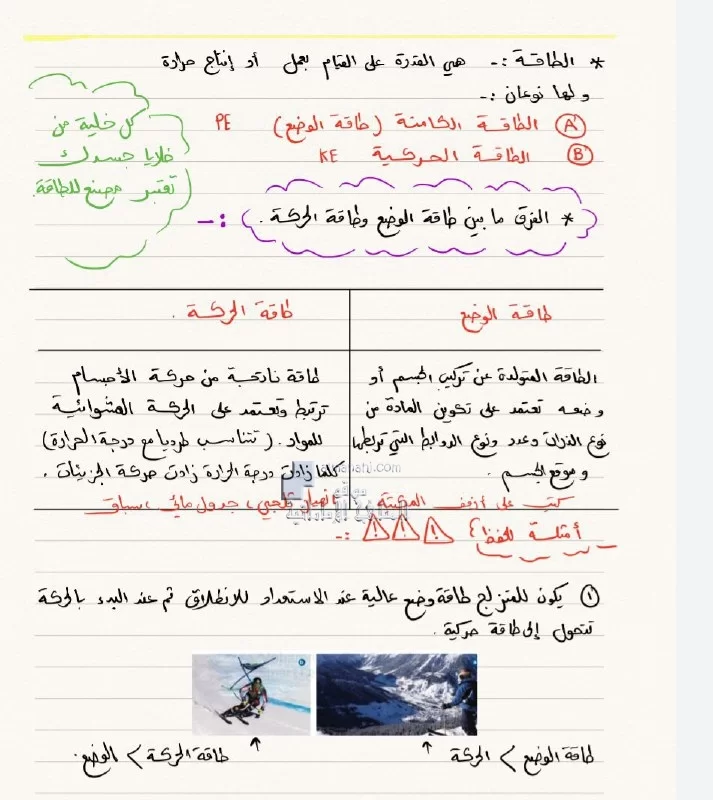 * الطاقة :- هي القدرة على القيام بعمل أو إنتاج حرارة
و لها نوعان :-
A الطاقة الكامنة (طاقة الوضع) PE
B الطاقة الحركية KE
كل خلية من
خلايا جسدك
تعتبر مصنع للطاقة.
* الفرق ما بين طاقة الوضع وطاقة الحركة . :-
طاقة الوضع
طاقة الحركة .
الطاقة المتولدة عن تركيب الجسم أو
وضعه تعتمد على تكوين المادة من
نوع الذرات وعدد ونوع الروابط التي تربطها
و موقع الجسم .
طاقة ناتجة من حركة الأجسام
ترتبط وتعتمد على الحركة العشوائية
للمواد . (تتناسب طرديا مع درجة الحرارة)
كلما زادت درجة الحرارة زادت حركة الجزيئات .
كتب على أرفف المكتبة
انهيار ثلجي ، جدول مائي ، سباق
أمثلة للحفظ :-
١ يكون للمتزلج طاقة وضع عالية عند الاستعداد للانطلاق ثم عند البدء بالحركة
تتحول إلى طاقة حركية .
طاقة الوضع > الحركة ↑
طاقة الحركة > الوضع . ↑